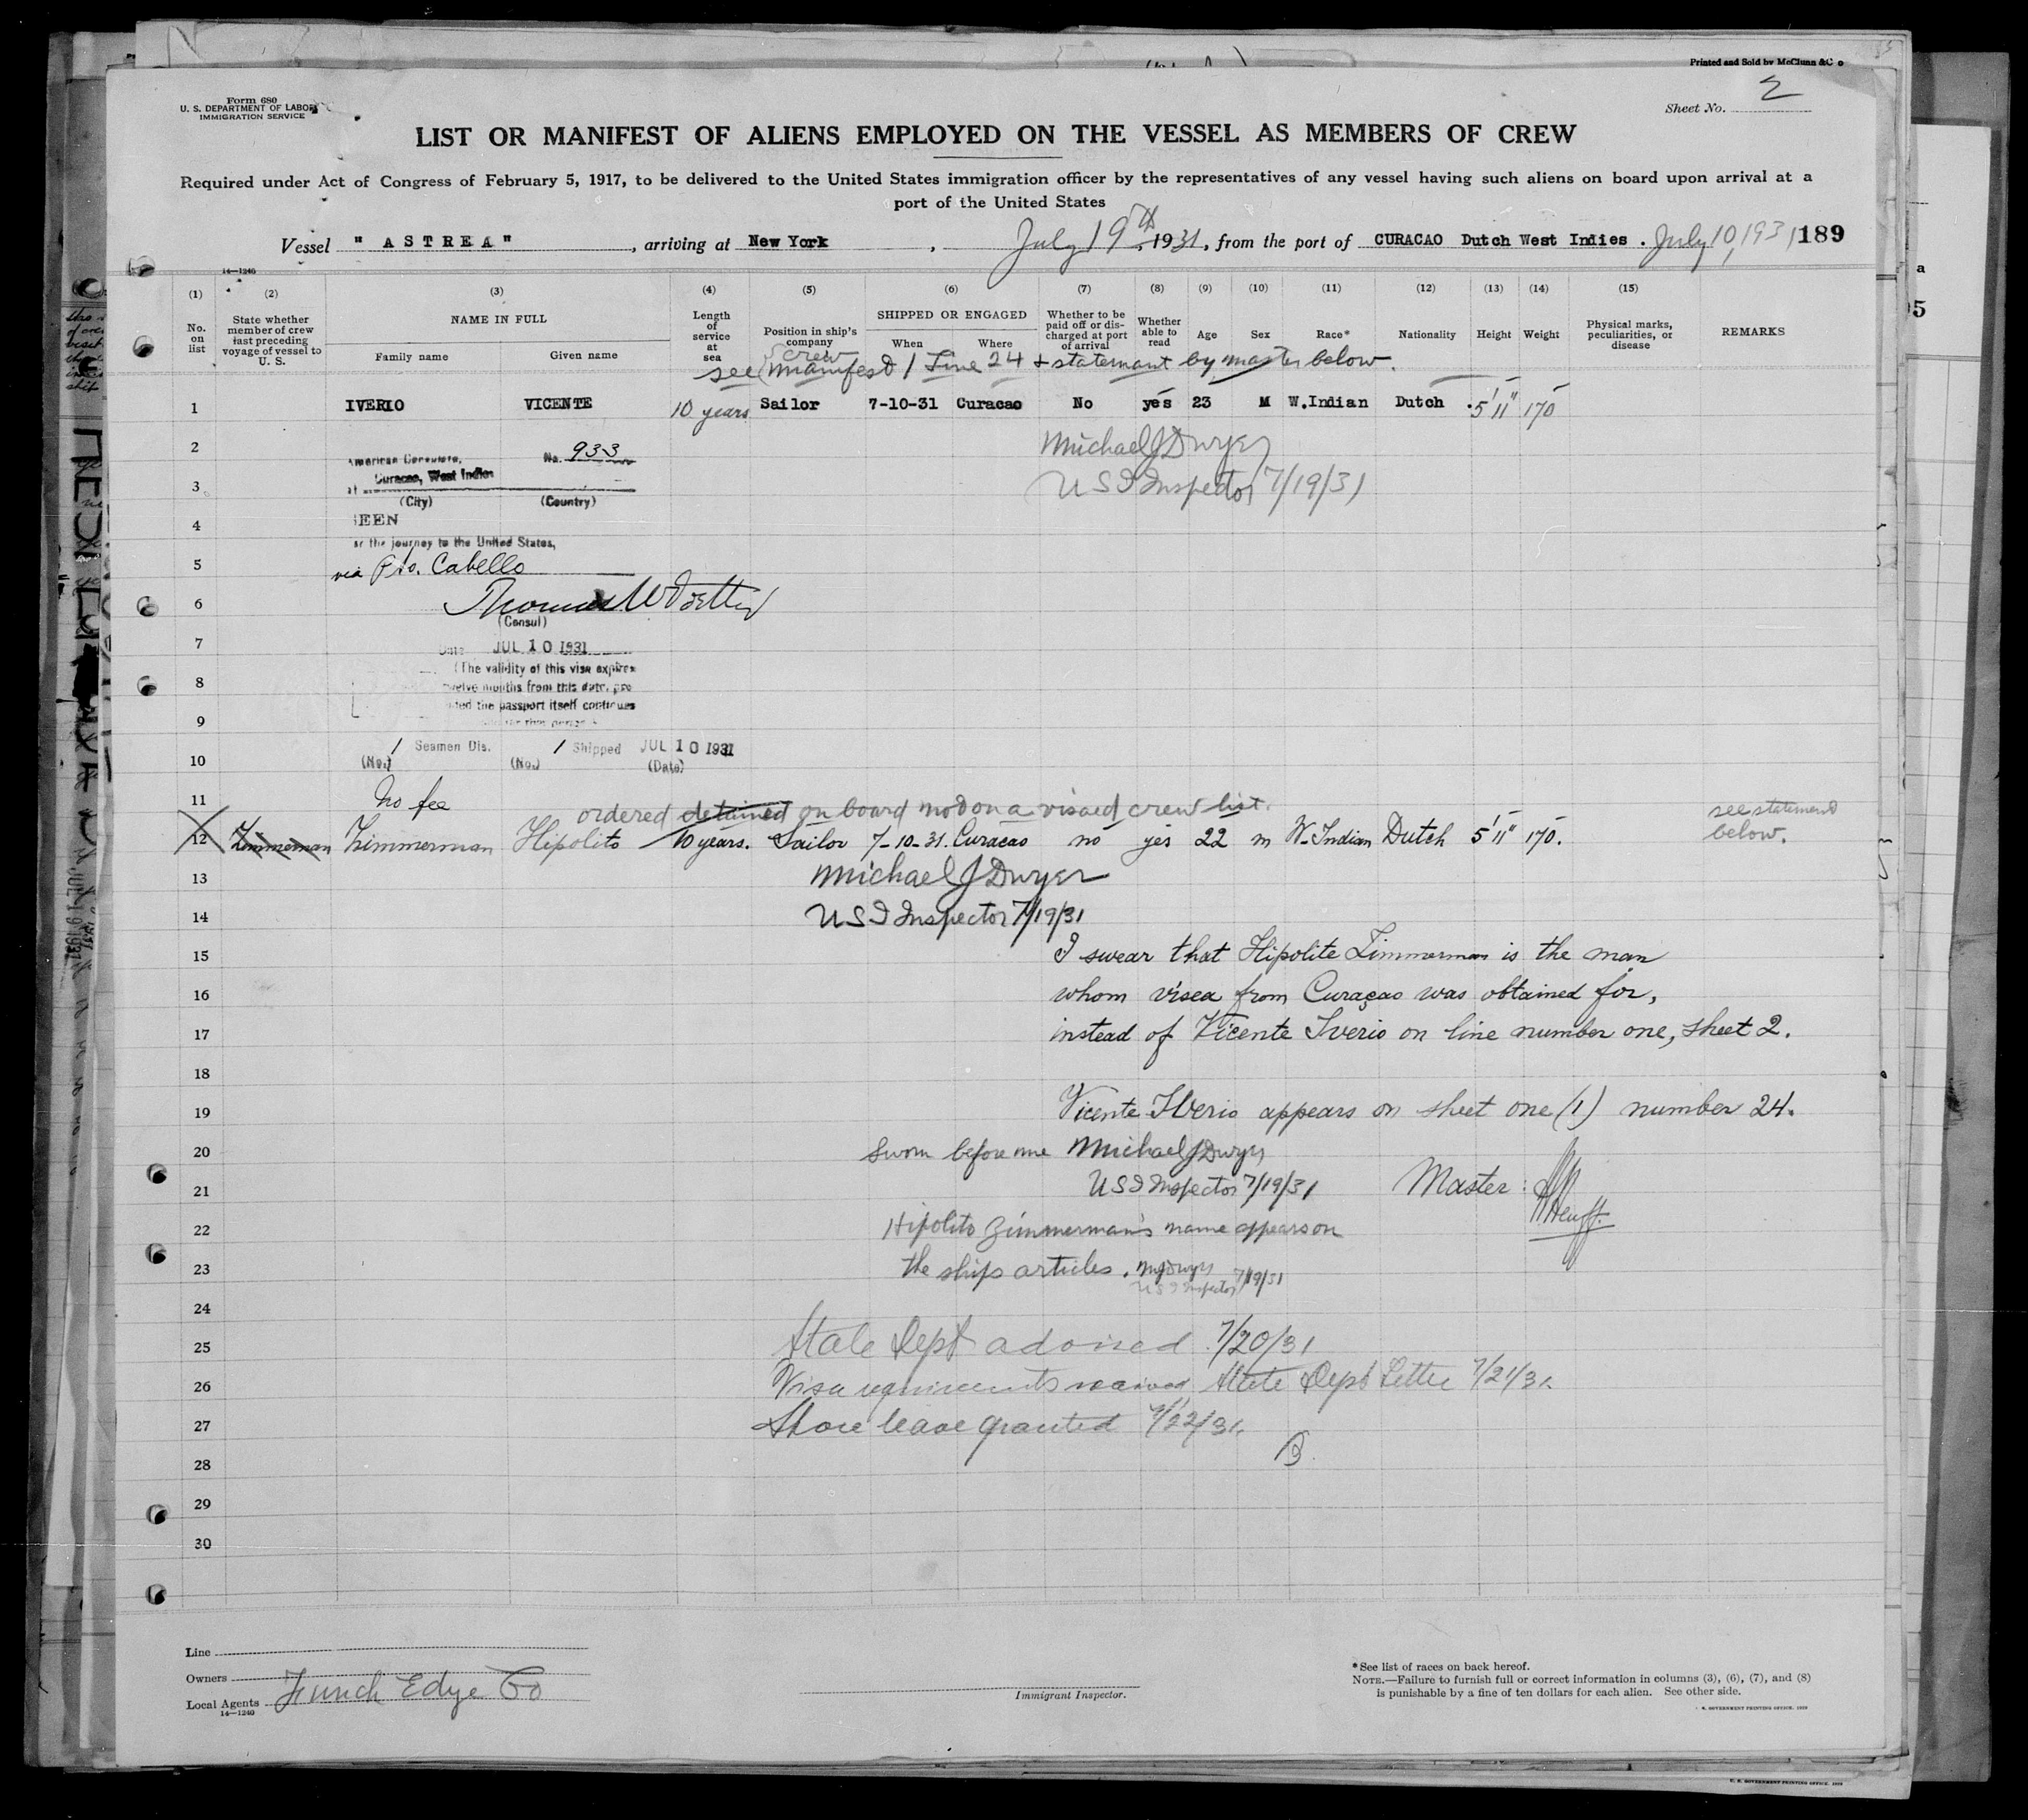 Printed and Sold by McClunn &Co
Form 680
U. S. DEPARTMENT OF LABOR
IMMIGRATION SERVICE
Sheet No. 2
LIST OR MANIFEST OF ALIENS EMPLOYED ON THE VESSEL AS MEMBERS OF CREW
Required under Act of Congress of February 5, 1917, to be delivered to the United States immigration officer by the representatives of any vessel having such aliens on board upon arrival at a
port of the United States
Vessel "ASTREA", arriving at New York, July 19th, 1931, from the port of CURACAO Dutch West Indies. July 10, 1931 189
14—1240
(1) (2) (3) (4) (5) (6) (7) (8) (9) (10) (11) (12) (13) (14) (15)
No. on list
State whether member of crew last preceding voyage of vessel to U. S.
NAME IN FULL
Family name Given name
Length of service at sea
Position in ship's company
SHIPPED OR ENGAGED
When Where
Whether to be paid off or discharged at port of arrival
Whether able to read
Age Sex Race* Nationality Height Weight
Physical marks, peculiarities, or disease
REMARKS
crew
see manifest 1 Line 24 + statement by master below.
1 IVERIO VICENTE 10 years Sailor 7-10-31 Curacao No yes 23 M W.Indian Dutch 5'11" 170
2 Michael J Dwyer
No. 933
Curacao, West Indies
3 U S I Inspector 7/19/31
(City) (Country)
4 EEN
the journey to the United States,
5 via Pto. Cabello
6
(Consul)
7 Date JUL 10 1931
(The validity of this visa expires
8 twelve months from this date, pro
the passport itself continues
9
10 1 Seamen Dis. 1 Shipped JUL 10 1931
(No.) (No.) (Date)
11 No fee
ordered detained on board not on a visaed crew list.
see statement
below.
12 Zimmerman Zimmerman Hipolito 10 years. Sailor 7-10-31. Curacao no yes 22 m W-Indian Dutch 5'11" 170.
13 Michael J Dwyer
14 U S I Inspector 7/19/31
15 I swear that Hipolite Zimmerman is the man
16 whom visea from Curaçao was obtained for,
17 instead of Vicente Iverio on line number one, sheet 2.
18
19 Vicente Iverio appears on sheet one (1) number 24.
20 Sworn before me Michael J Dwyer
21 U S I Inspector 7/19/31 Master:
22 Hipolito Zimmerman's name appears on
23 the ship articles. MJ Dwyer
U S I Inspector 7/19/31
24
25 State Dept advised 7/20/31
26 Visa requirements waived State Dept Letter 7/21/31.
27 Shore leave granted 7/22/31.
28
29
30
Line
Owners
Local Agents Funch Edye Co
14—1240
Immigrant Inspector.
*See list of races on back hereof.
NOTE.—Failure to furnish full or correct information in columns (3), (6), (7), and (8)
is punishable by a fine of ten dollars for each alien. See other side.